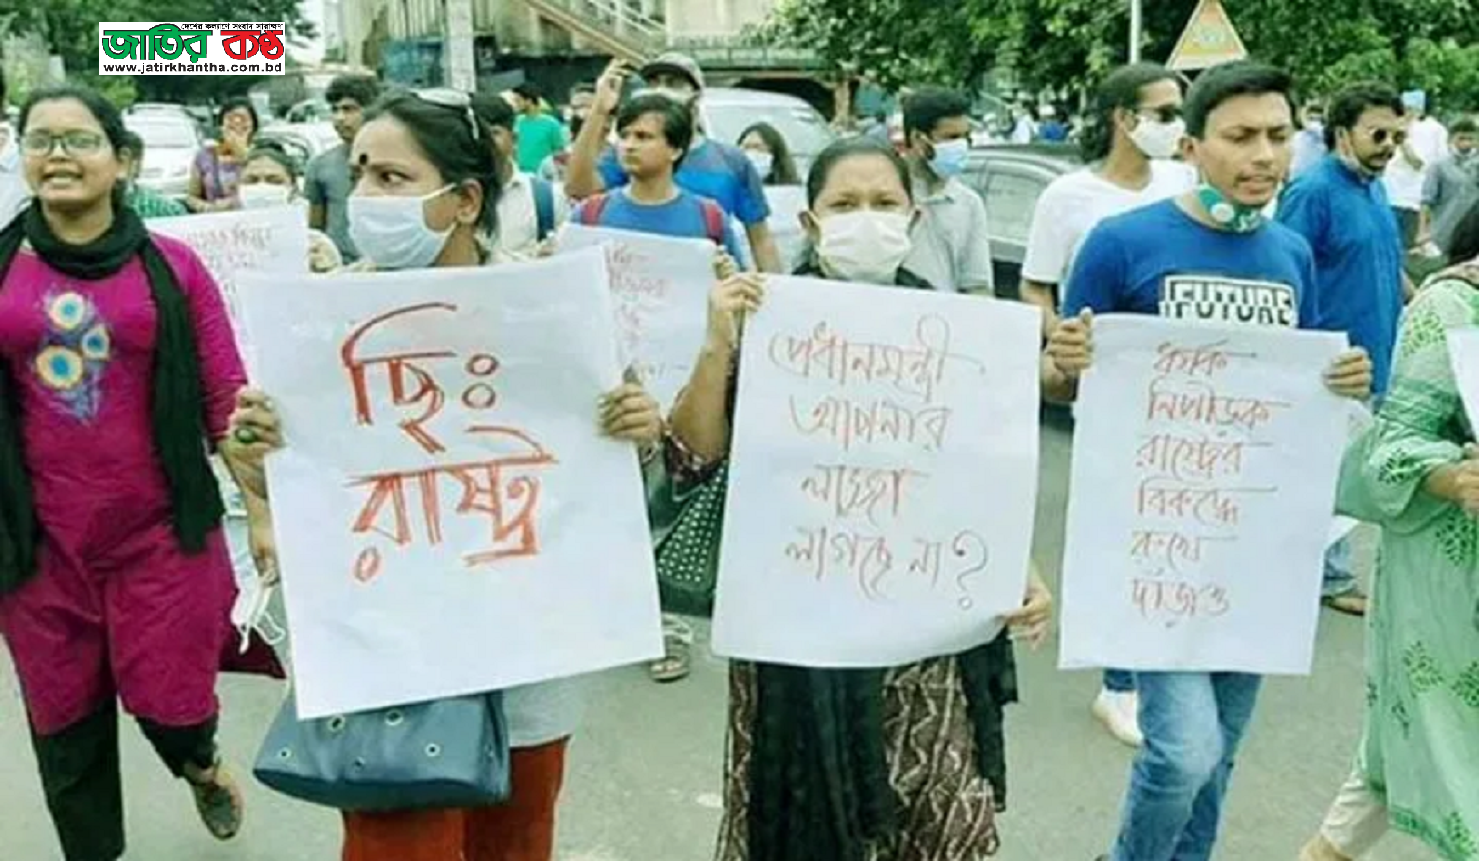 দেশের কল্যাণে সংবাদ সারাক্ষণ
জাতির কণ্ঠ
www.jatirkhantha.com.bd
ছিঃ
রাষ্ট্র
প্রধানমন্ত্রী
আপনার
লজ্জা
লাগছে না?
FUTURE
ধর্ষক
নিপীড়ক
রাষ্ট্রের
বিরুদ্ধে
রুখে
দাঁড়াও